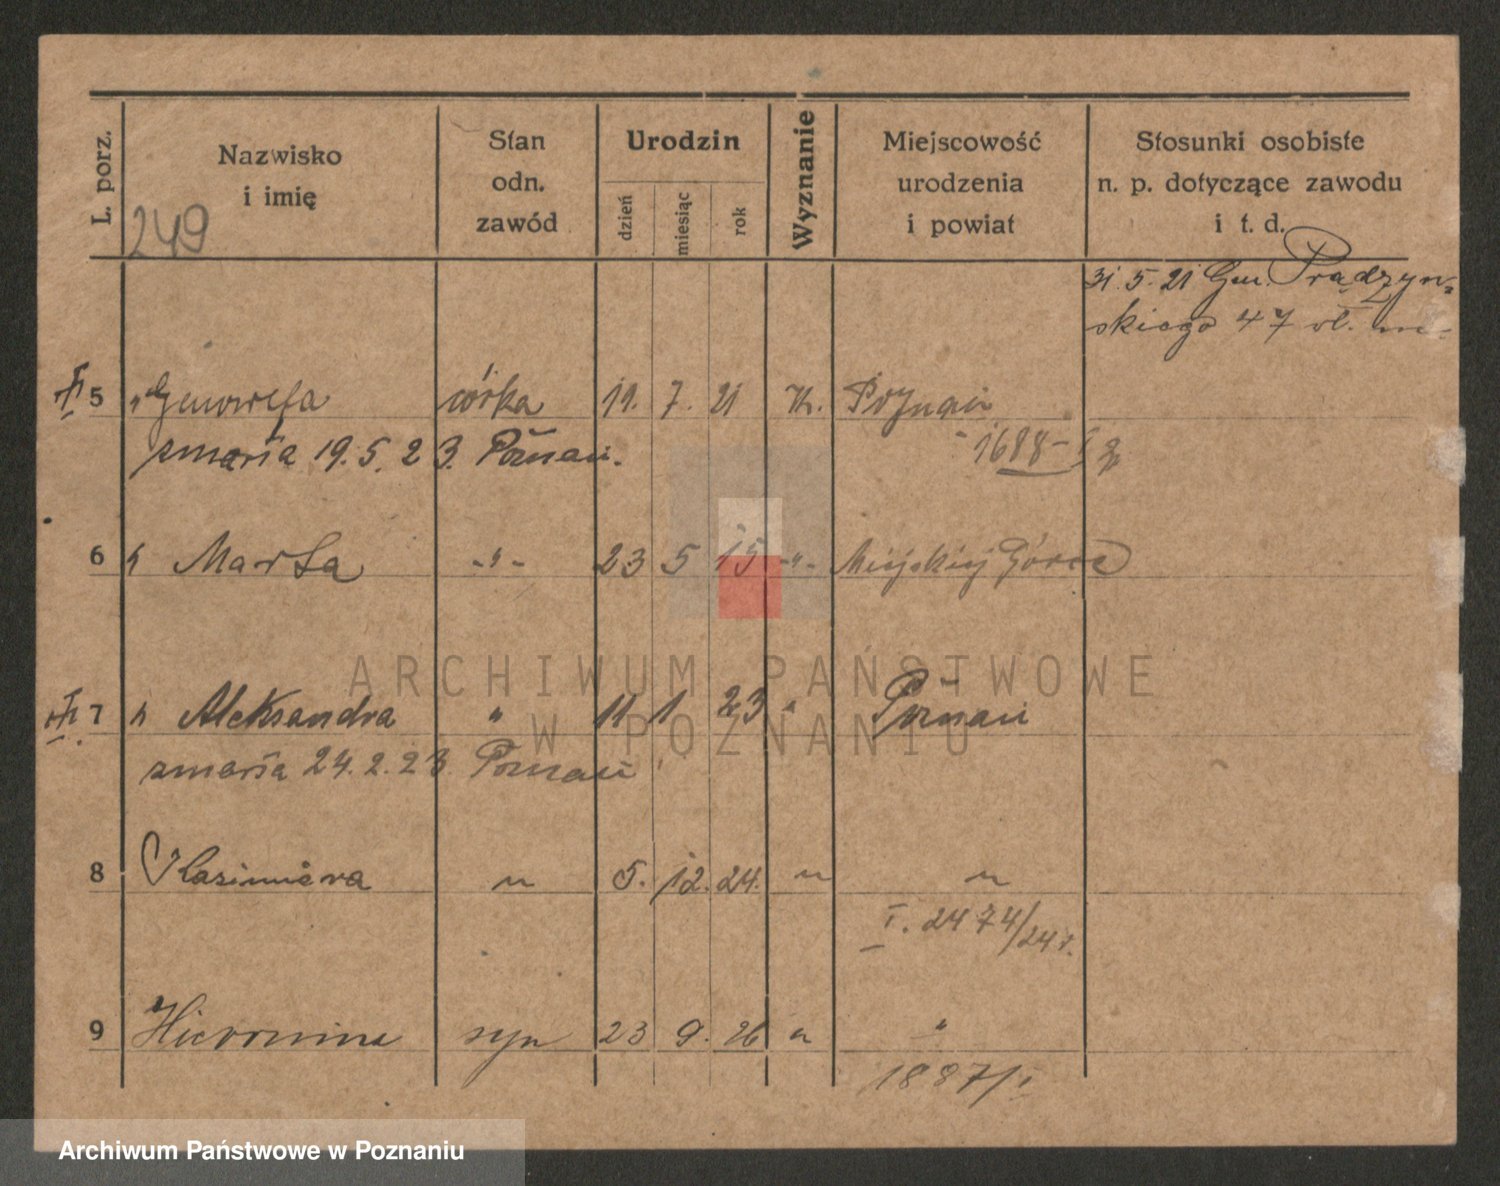 L. porz.
Nazwisko
i imię
Stan
odn.
zawód
Urodzin
dzień
miesiąc
rok
Wyznanie
Miejscowość
urodzenia
i powiat
Stosunki osobiste
n. p. dotyczące zawodu
i t. d.
249
31. 5. 21 Gen. Prądzyn-
skiego 47 wł.
5 " Genowefa córka 11. 7. 21 Poznań
zmarła 19. 5. 23. Poznań. 1688 - I
6 " Marta -"- 23 5 15 -"- Miejskiej Górce
7 " Aleksandra " 11 1 23 " Poznań
zmarła 24. 2. 23. Poznań
8 Kazimiera " 5. 12. 24. " "
I. 2474/24 r.
9 Hieronim syn 23 9. 26 " "
1887/I
ARCHIWUM PAŃSTWOWE
W POZNANIU
Archiwum Państwowe w Poznaniu